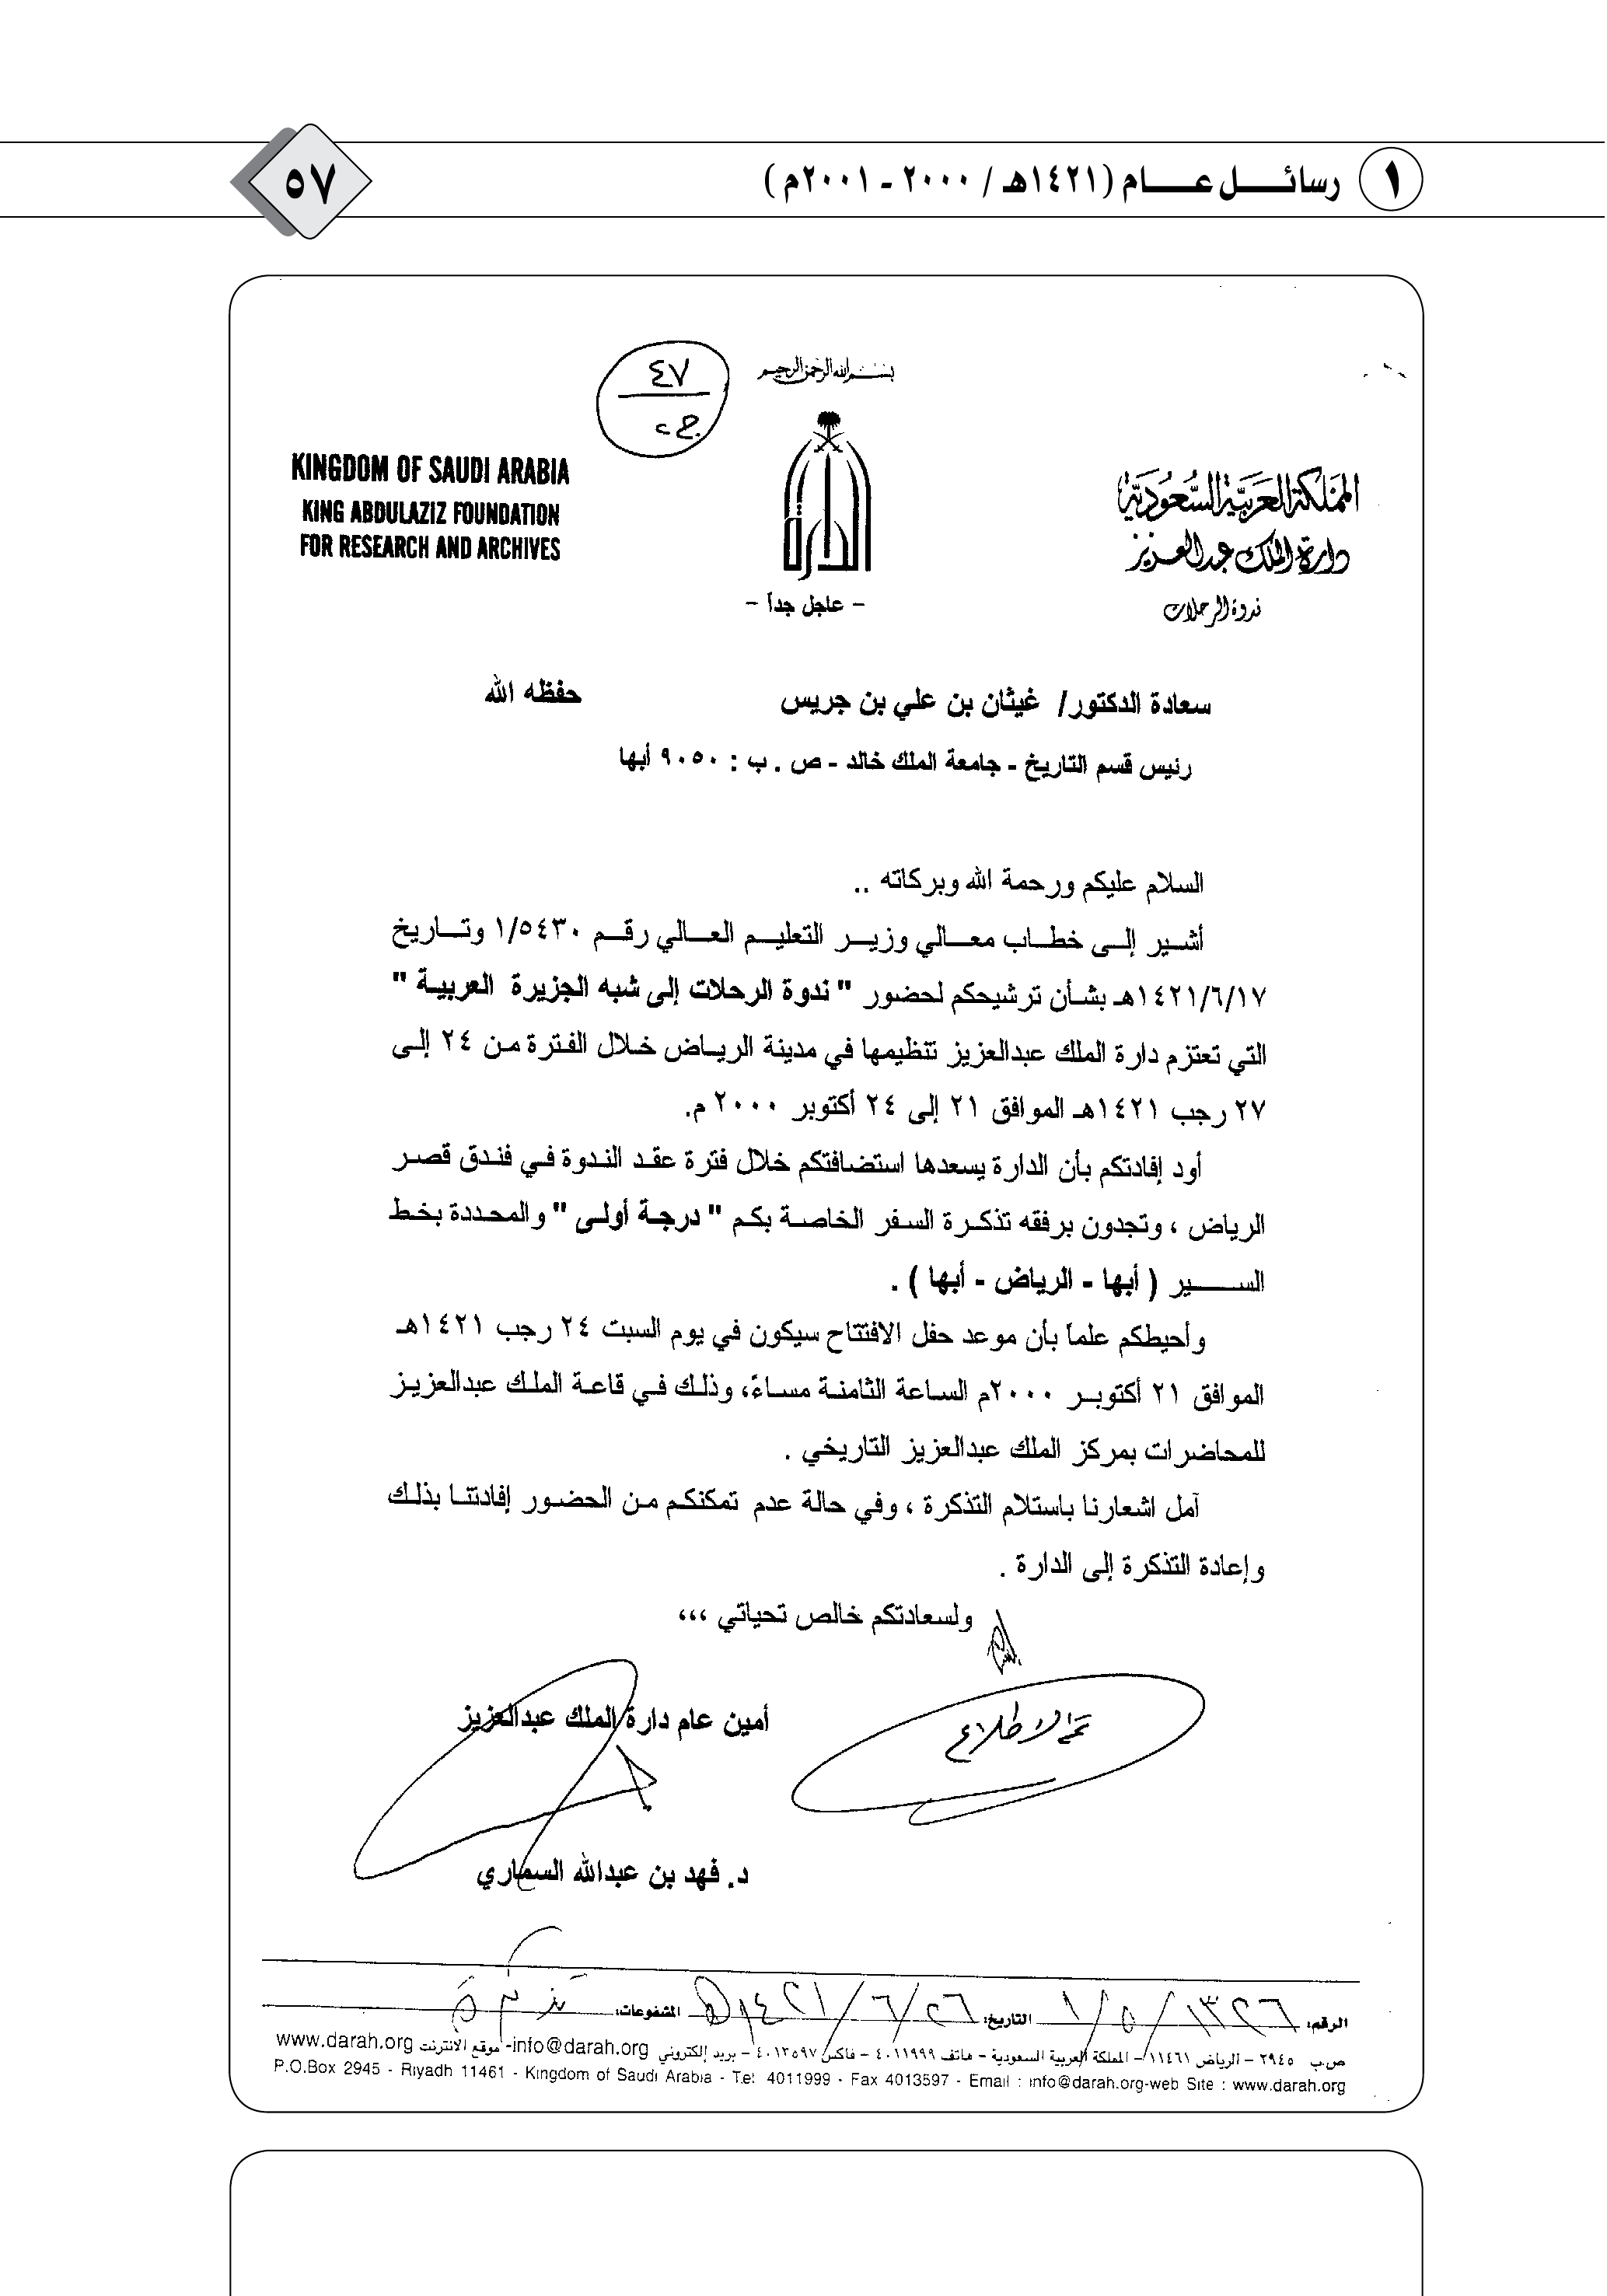 ١ رسائـــل عـــام (١٤٢١هـ / ٢٠٠٠ - ٢٠٠١م )
٥٧
٤٧
بسم الله الرحمن الرحيم
KINGDOM OF SAUDI ARABIA
KING ABDULAZIZ FOUNDATION
FOR RESEARCH AND ARCHIVES
الدارة
المملكة العربية السعودية
دارة الملك عبدالعزيز
ندوة الرحلات
- عاجل جداً -
سعادة الدكتور/ غيثان بن علي بن جريس حفظه الله
رئيس قسم التاريخ - جامعة الملك خالد - ص . ب : ٩٠٥٠ أبها
السلام عليكم ورحمة الله وبركاته ..
أشير إلى خطاب معالي وزير التعليم العالي رقم ١/٥٤٣٠ وتاريخ
١٤٢١/٦/١٧هـ بشأن ترشيحكم لحضور " ندوة الرحلات إلى شبه الجزيرة العربية "
التي تعتزم دارة الملك عبدالعزيز تنظيمها في مدينة الرياض خلال الفترة من ٢٤ إلى
٢٧ رجب ١٤٢١هـ الموافق ٢١ إلى ٢٤ أكتوبر ٢٠٠٠ م.
أود إفادتكم بأن الدارة يسعدها استضافتكم خلال فترة عقد الندوة في فندق قصر
الرياض ، وتجدون برفقه تذكرة السفر الخاصة بكم " درجة أولى " والمحددة بخط
السير ( أبها - الرياض - أبها ) .
وأحيطكم علماً بأن موعد حفل الافتتاح سيكون في يوم السبت ٢٤ رجب ١٤٢١هـ
الموافق ٢١ أكتوبر ٢٠٠٠م الساعة الثامنة مساءً، وذلك في قاعة الملك عبدالعزيز
للمحاضرات بمركز الملك عبدالعزيز التاريخي .
آمل اشعارنا باستلام التذكرة ، وفي حالة عدم تمكنكم من الحضور إفادتنا بذلك
وإعادة التذكرة إلى الدارة .
ولسعادتكم خالص تحياتي ،،،
أمين عام دارة الملك عبدالعزيز
تم الاطلاع
د. فهد بن عبدالله السماري
الرقم: ١/٥/١٣٢٦ التاريخ: ١٤٢١/٦/٢٦هـ المشفوعات:
ص.ب ٢٩٤٥ – الرياض ١١٤٦١ – المملكة العربية السعودية – هاتف ٤٠١١٩٩٩ – فاكس ٤٠١٣٥٩٧ – بريد إلكتروني info@darah.org- موقع الانترنت www.darah.org
P.O.Box 2945 - Riyadh 11461 - Kingdom of Saudi Arabia - Tel 4011999 - Fax 4013597 - Email : info@darah.org-web Site : www.darah.org